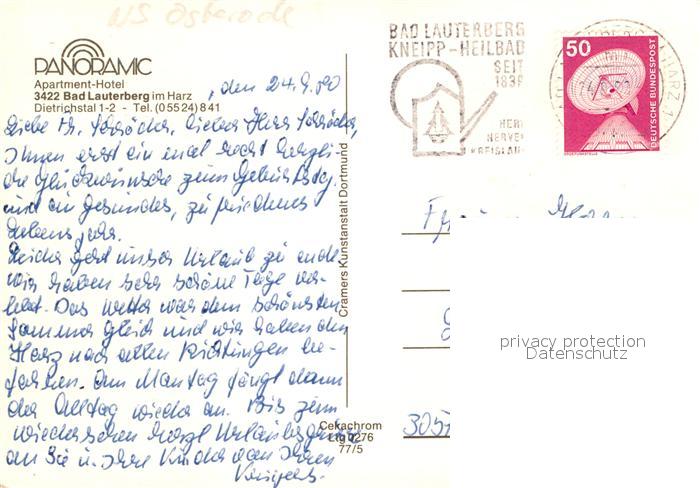 NS Osterode
PANORAMIC
Apartment-Hotel
3422 Bad Lauterberg im Harz
Dietrichstal 1-2 - Tel. (05524) 841
BAD LAUTERBERG
KNEIPP-HEILBAD
SEIT
1839
HERZ
NERVEN
KREISLAUF
50
DEUTSCHE BUNDESPOST
HARZ 1
, den 24.9.80
Liebe Fr. Schröder, lieber Herr Schröder,
Ihnen erst ein mal recht herzli-
che Glückwünsche zum Geburtstag.
und ein gesundes, zufriedenes
Lebensjahr.
Leider geht unser Urlaub zu ende
wir haben sehr schöne Tage ver-
lebt. Das Wetter war dem schönsten
Sommer gleich und wir haben den
Harz nach allen Richtungen be-
fahren. Am Montag fängt dann
der Alltag wieder an. Bis zum
wiedersehen herzl. Urlaubsgrüsse
an Sie u. Ihre Kinder von Ihren
Cramers Kunstanstalt Dortmund
Cekachrom
Ltg 0276
77/5
305
privacy protection
Datenschutz